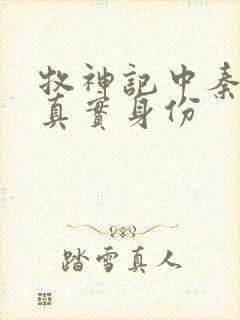 牧神記中秦
真實身份
踏雪真人